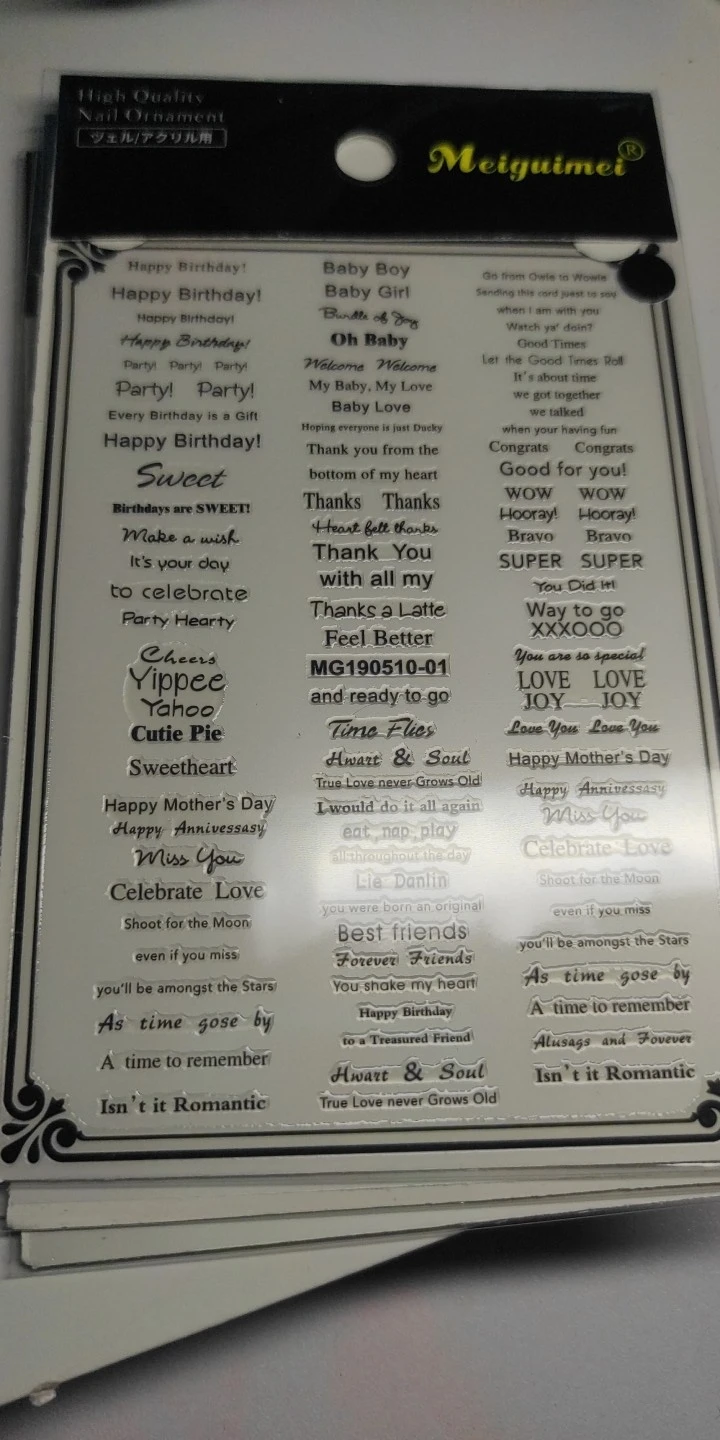 High Quality
Nail Ornament
ジェル/アクリル用
Meiguimei®
Happy Birthday!
Happy Birthday!
Happy Birthday!
Happy Birthday!
Party! Party! Party!
Party! Party!
Every Birthday is a Gift
Happy Birthday!
Sweet
Birthdays are SWEET!
Make a wish
It's your day
to celebrate
Party Hearty
Cheers
Yippee
Yahoo
Cutie Pie
Sweetheart
Happy Mother's Day
Happy Annivessasy
Miss You
Celebrate Love
Shoot for the Moon
even if you miss
you'll be amongst the Stars
As time gose by
A time to remember
Isn't it Romantic
Baby Boy
Baby Girl
Bundle of Joy
Oh Baby
Welcome Welcome
My Baby, My Love
Baby Love
Hoping everyone is just Ducky
Thank you from the
bottom of my heart
Thanks Thanks
Heart felt thanks
Thank You
with all my
Thanks a Latte
Feel Better
MG190510-01
and ready to go
Time Flies
Hwart & Soul
True Love never Grows Old
I would do it all again
eat, nap, play
all throughout the day
Lie Danlin
you were born an original
Best friends
Forever Friends
You shake my heart
Happy Birthday
to a Treasured Friend
Hwart & Soul
True Love never Grows Old
Go from Owie to Wowie
Sending this card juest to say
when I am with you
Watch ya' doin?
Good Times
Let the Good Times Roll
It's about time
we got together
we talked
when your having fun
Congrats Congrats
Good for you!
WOW WOW
Hooray! Hooray!
Bravo Bravo
SUPER SUPER
You Did It!
Way to go
XXXOOO
You are so special
LOVE LOVE
JOY JOY
Love You Love You
Happy Mother's Day
Happy Annivessasy
Miss You
Celebrate Love
Shoot for the Moon
even if you miss
you'll be amongst the Stars
As time gose by
A time to remember
Alusags and Fovever
Isn't it Romantic